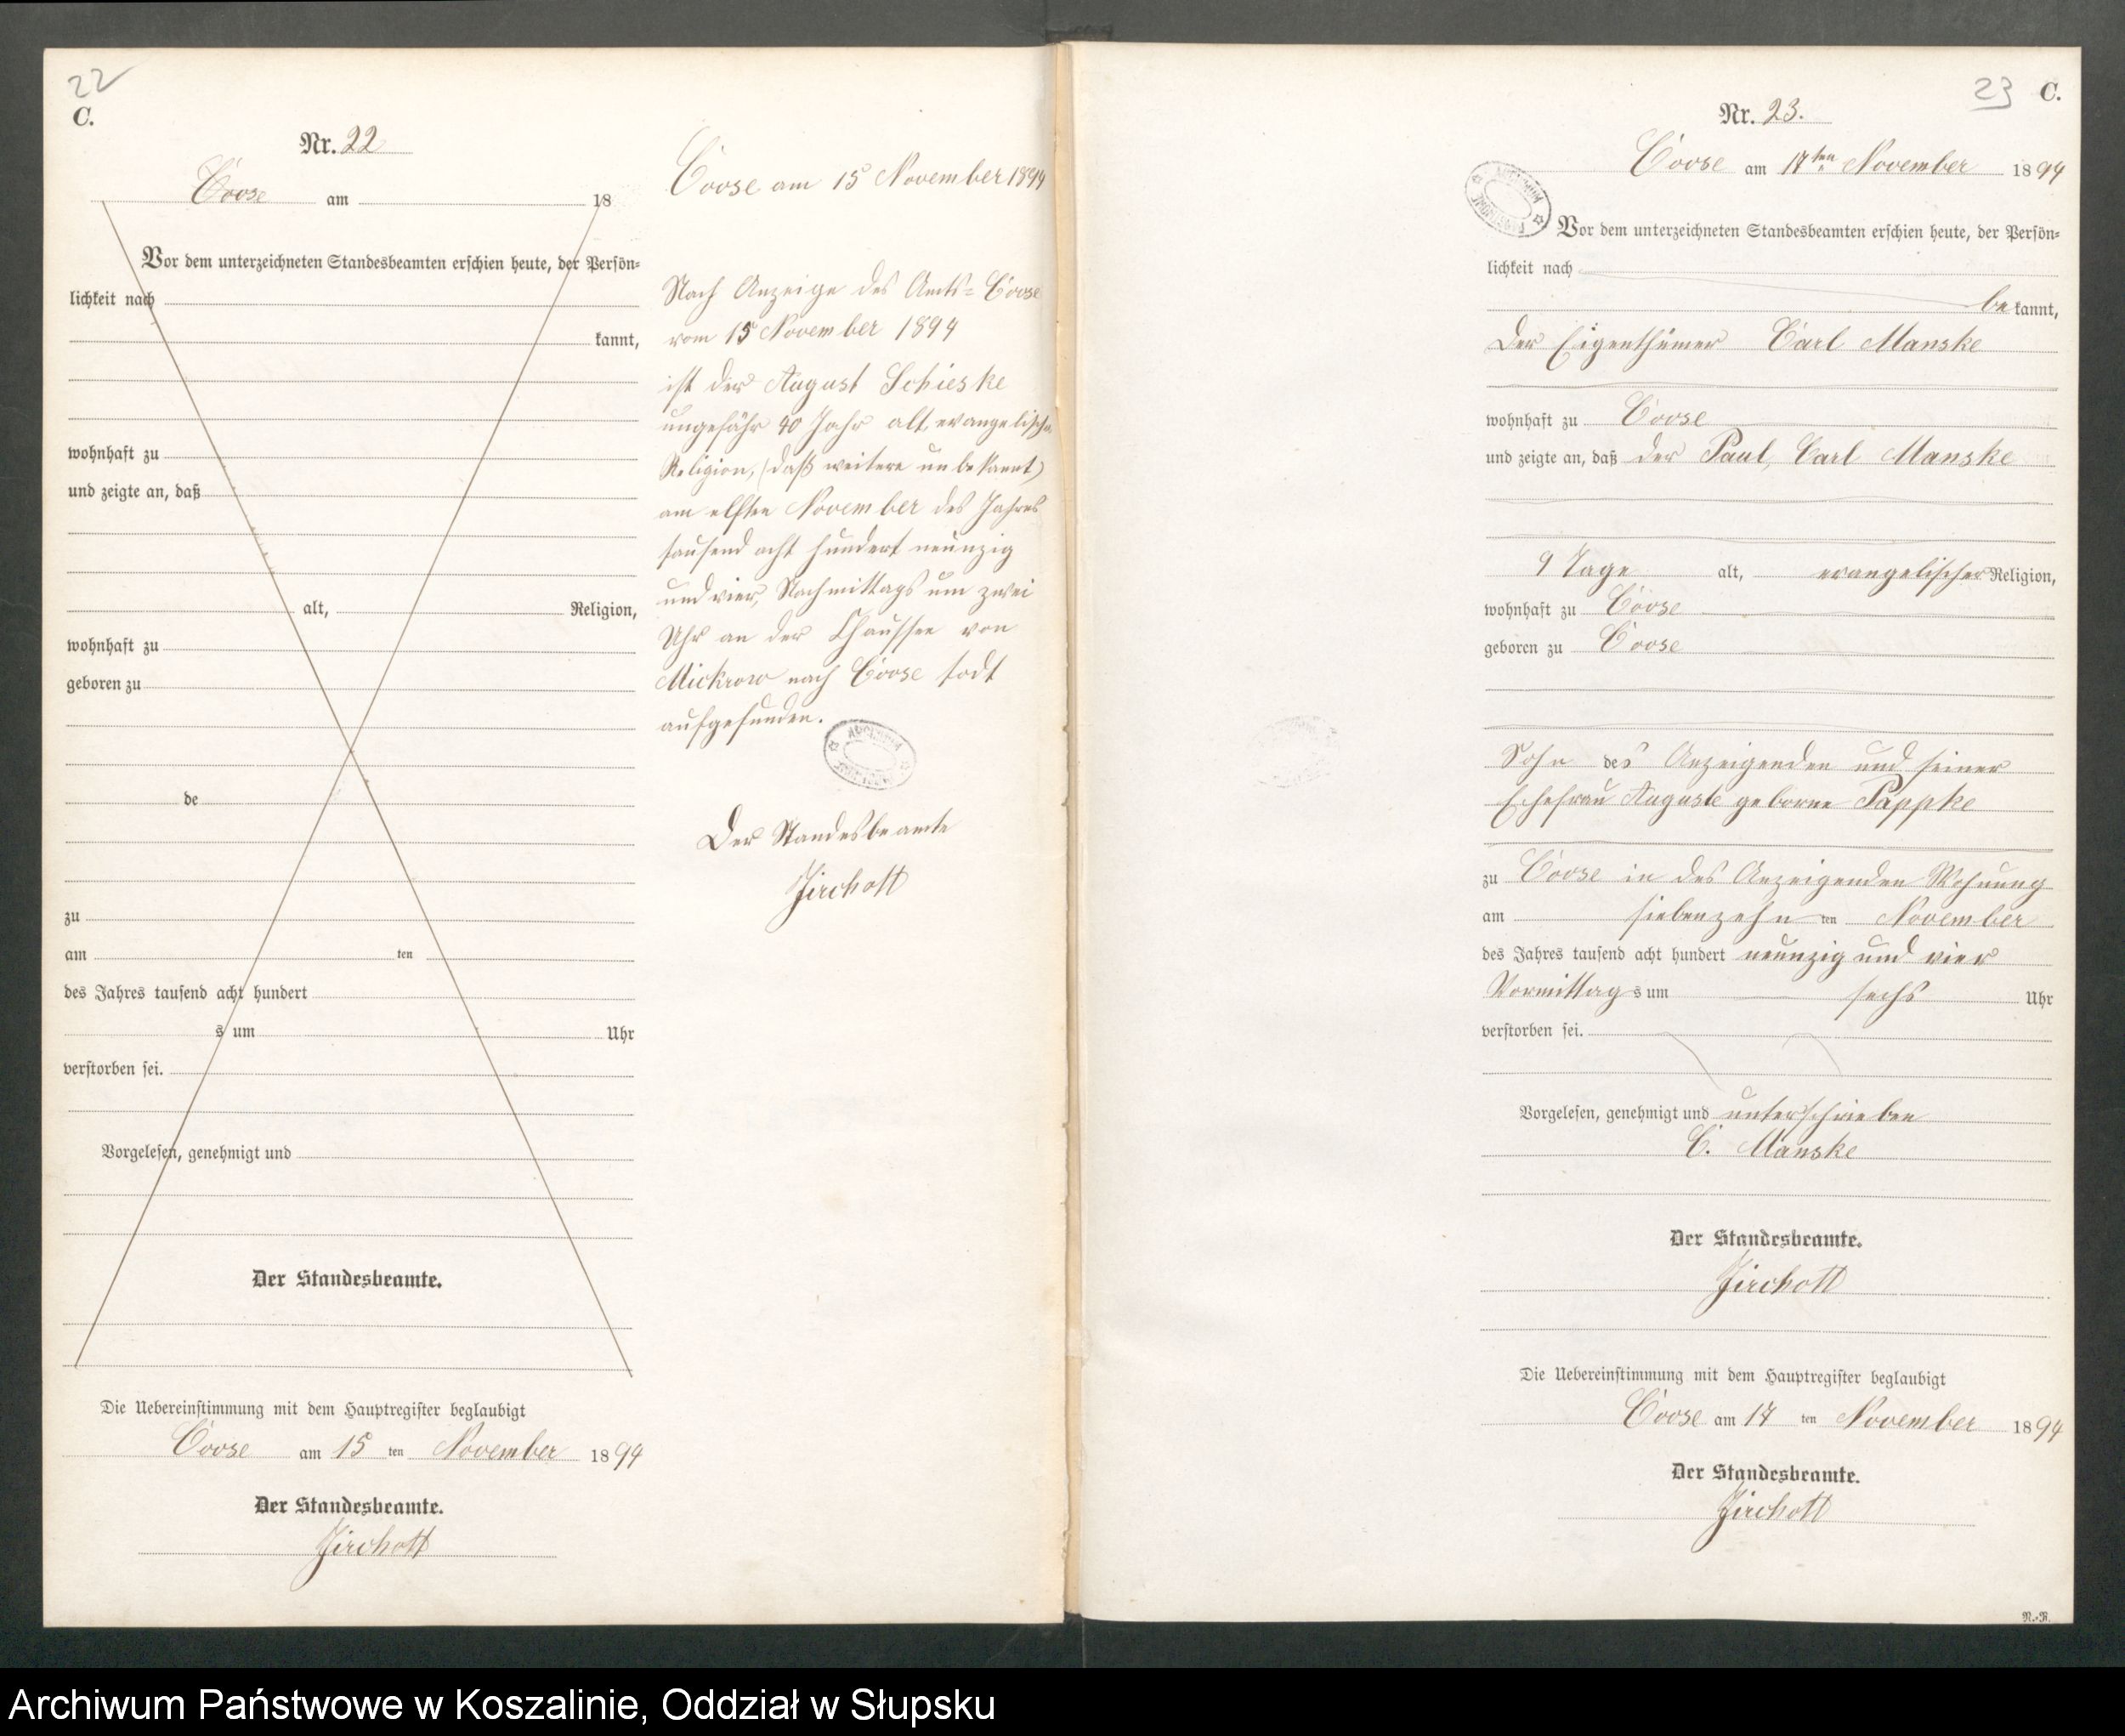 22
C.
Nr. 22
Coose am 18
Vor dem unterzeichneten Standesbeamten erschien heute, der Persön=
lichkeit nach
kannt,
wohnhaft zu
und zeigte an, daß
alt, Religion,
wohnhaft zu
geboren zu
de
zu
am ten
des Jahres tausend acht hundert
s um Uhr
verstorben sei.
Vorgelesen, genehmigt und
Der Standesbeamte.
Die Uebereinstimmung mit dem Hauptregister beglaubigt
Coose am 15 ten November 1894
Der Standesbeamte.
Zirchott
Coose am 15 November 1894
Nach Anzeige des Amts= Coose
vom 15 November 1894
ist der August Schieske
ungefähr 40 Jahr alt, evangelischer
Religion, (daß weitere unbekannt)
am elften November des Jahres
tausend acht hundert neunzig
und vier, Nachmittags um zwei
Uhr an der Chaussee von
Mickrow nach Coose todt
aufgefunden.
Der Standesbeamte
Zirchott
23 C.
Nr. 23.
Coose am 17ten November 1894
Vor dem unterzeichneten Standesbeamten erschien heute, der Persön=
lichkeit nach
be kannt,
Der Eigenthümer Carl Manske
wohnhaft zu Coose
und zeigte an, daß der Paul, Carl Manske
9 Tage alt, evangelischer Religion,
wohnhaft zu Coose
geboren zu Coose
Sohn des Anzeigenden und seiner
Ehefrau Auguste geborne Pappke
zu Coose in des Anzeigenden Wohnung
am siebenzehn ten November
des Jahres tausend acht hundert neunzig und vier
Vormittag s um sechs Uhr
verstorben sei.
Vorgelesen, genehmigt und unterschrieben
C. Manske
Der Standesbeamte.
Zirchott
Die Uebereinstimmung mit dem Hauptregister beglaubigt
Coose am 17 ten November 1894
Der Standesbeamte.
Zirchott
R.-R.
Archiwum Państwowe w Koszalinie, Oddział w Słupsku